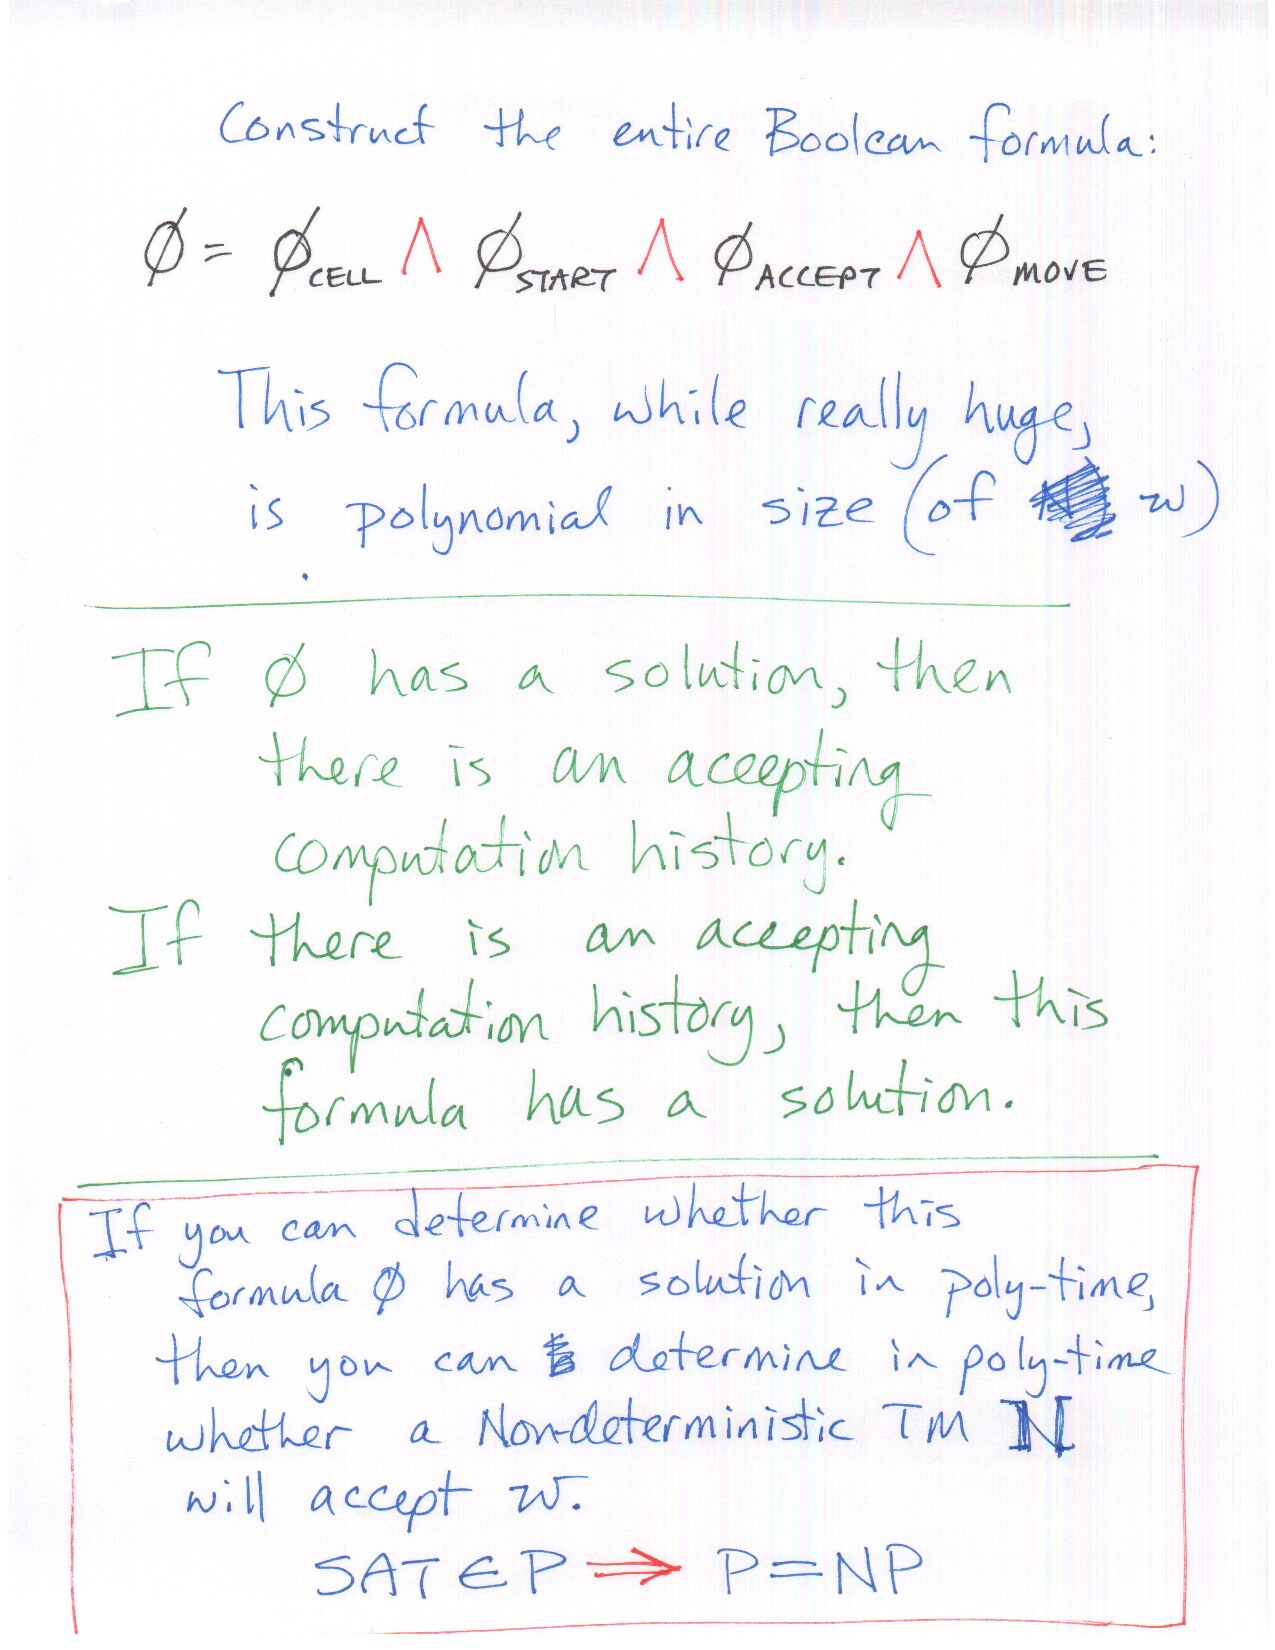 Construct the entire Boolean formula:
∅ = ∅CELL ∧ ∅START ∧ ∅ACCEPT ∧ ∅MOVE
This formula, while really huge,
is polynomial in size (of w)
If ∅ has a solution, then
there is an accepting
computation history.
If there is an accepting
computation history, then this
formula has a solution.
If you can determine whether this
formula ∅ has a solution in poly-time,
then you can determine in poly-time
whether a Non-deterministic TM N
will accept w.
SAT ∈ P ⇒ P = NP